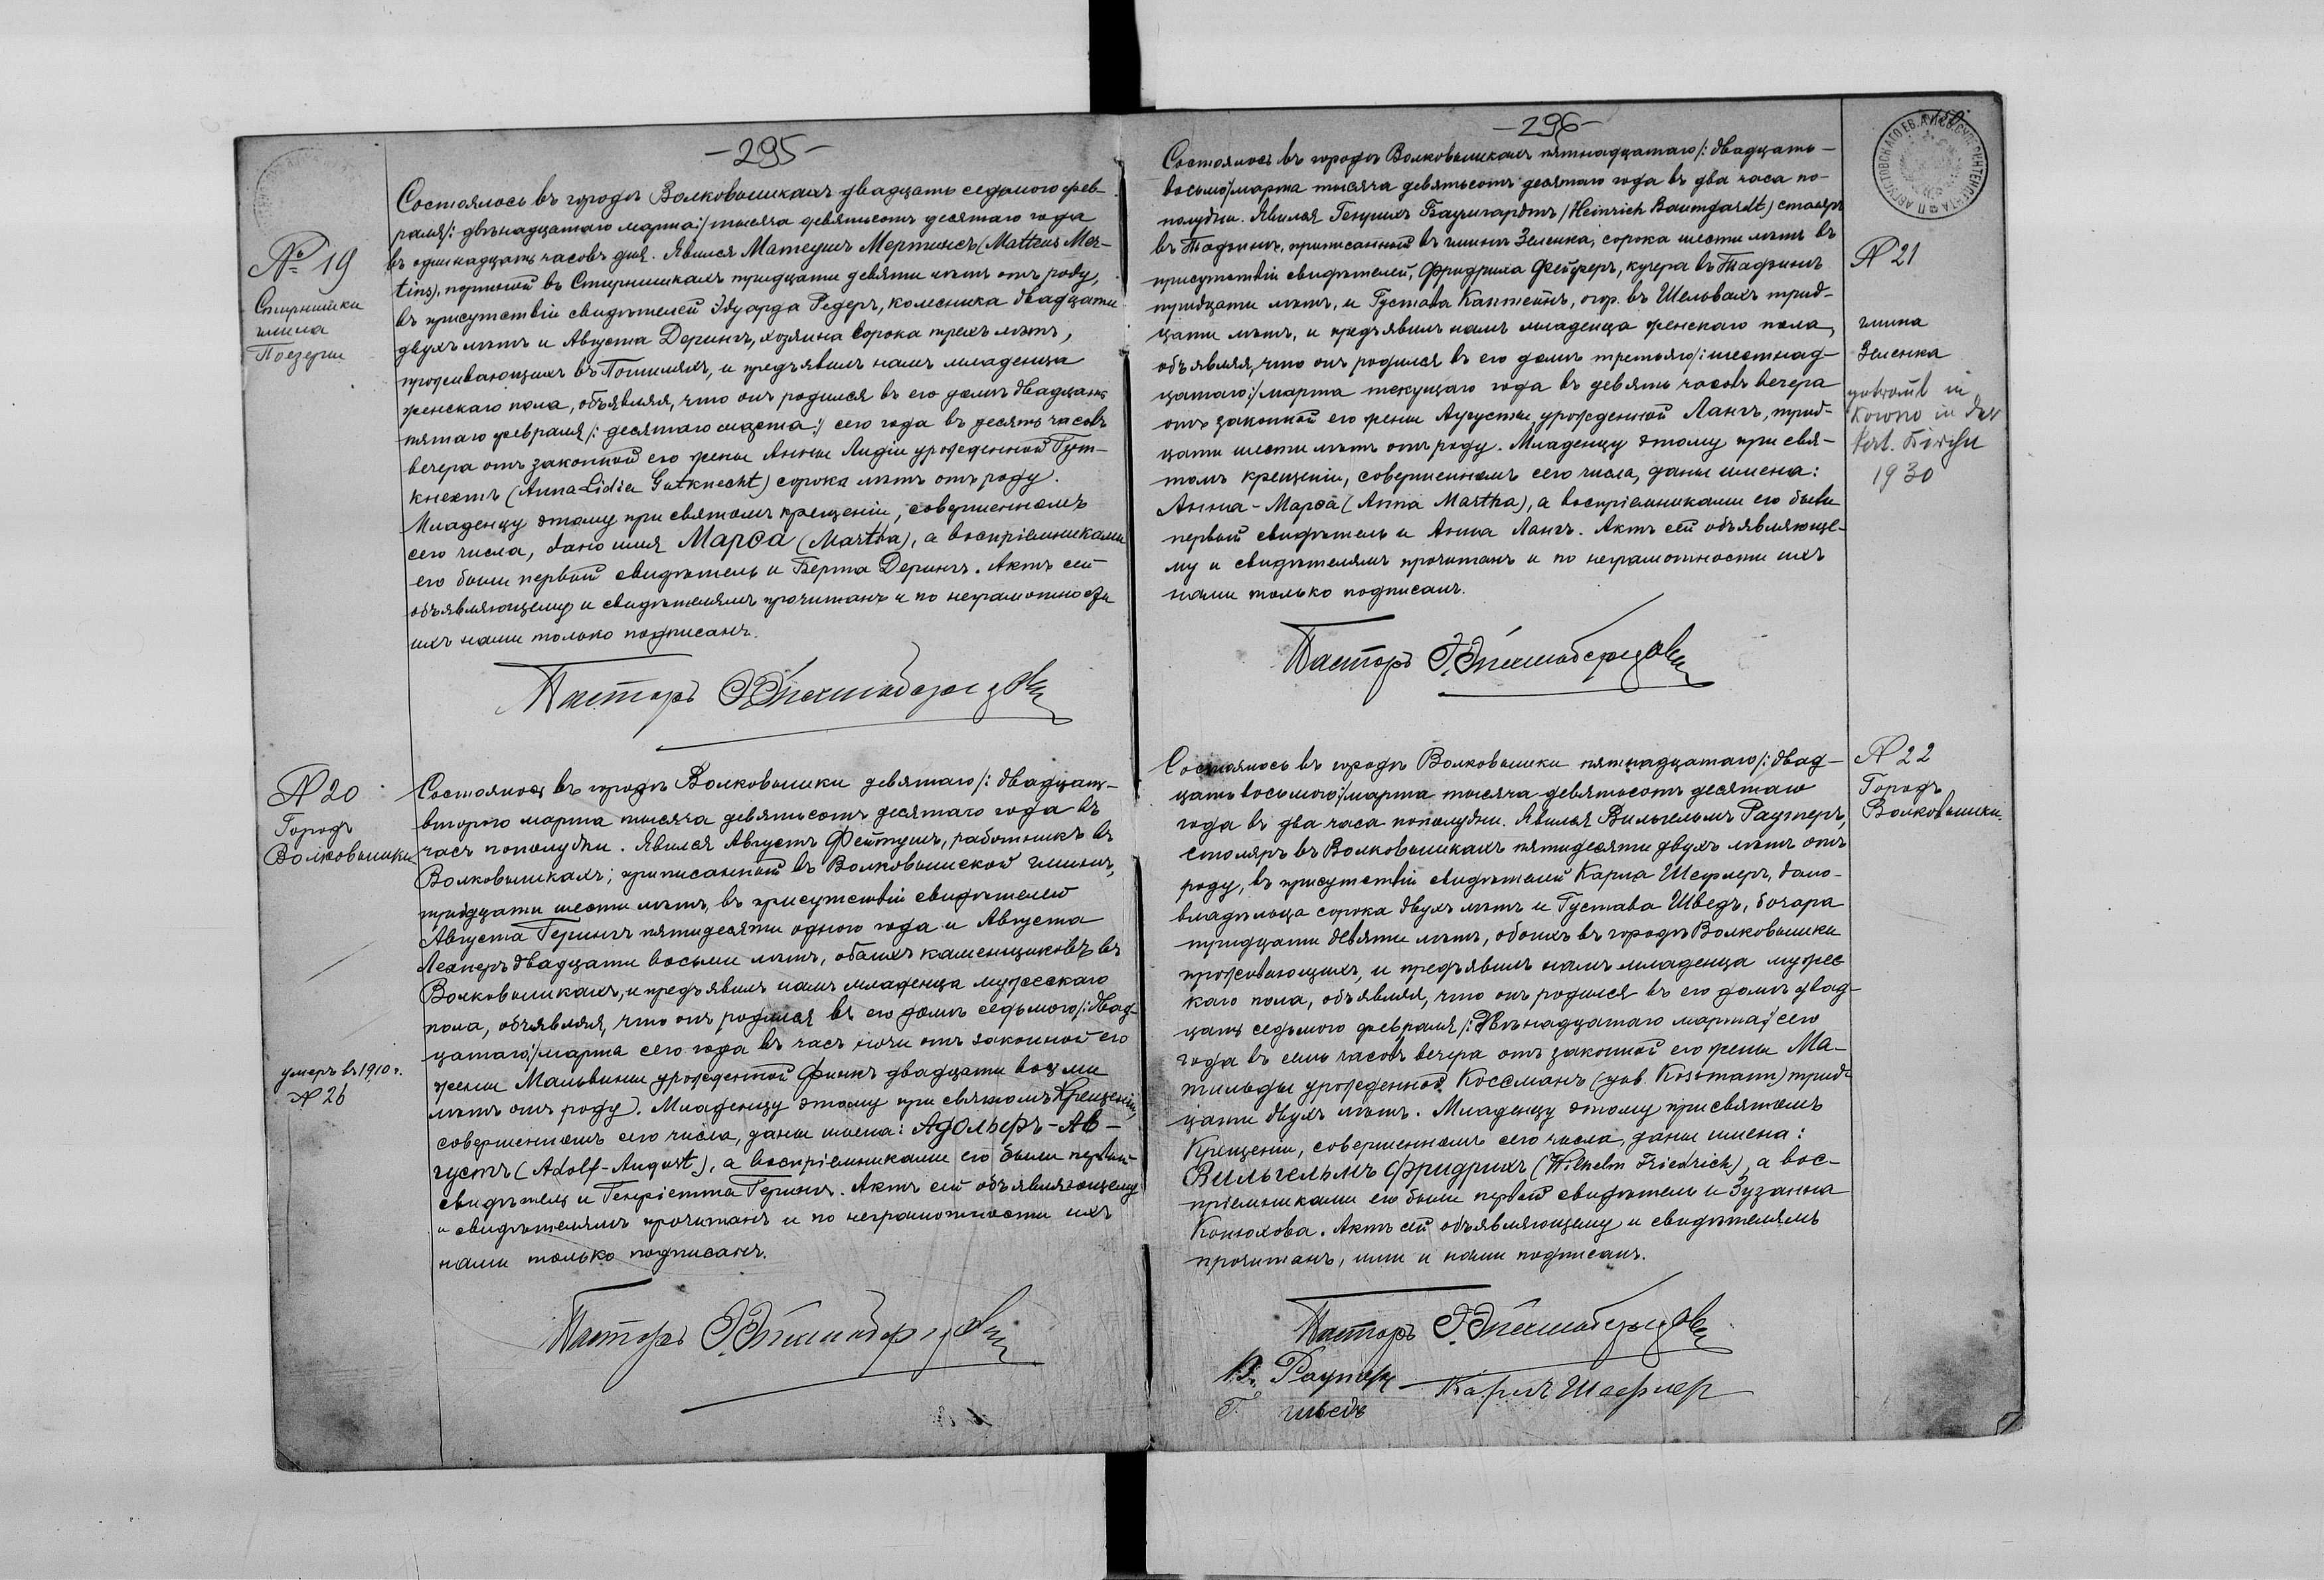 -295-
№ 19
Стирнишки
гмина
Поезеры
Состоялось въ городѣ Волковышкахъ двадцать седьмого фев-
раля/: двѣнадцатаго марта:/ тысяча девятьсотъ десятаго года
въ одиннадцать часовъ дня. Явился Матеушъ Мертинсъ (Matteus Mer-
tins), портной въ Стирнишкахъ тридцати девяти лѣтъ отъ роду,
въ присутствіи свидѣтелей Эдуарда Редеръ, колесника двадцати
двухъ лѣтъ и Августа Дерингъ, хозяина сорока трехъ лѣтъ,
проживающихъ въ, и предъявилъ намъ младенца
женскаго пола, объявляя, что онъ родился въ его домѣ двадцать
пятаго февраля/: десятаго марта:/ сего года въ десять часовъ
вечера отъ законной его жены Анны Лидіи урожденной Гут-
кнехтъ (Anna-Lidia Gutknecht) сорока лѣтъ отъ роду.
Младенцу этому при святомъ крещеніи, совершенномъ
сего числа, дано имя Марѳа (Martha), а воспріемниками
его были первый свидѣтель и Берта Дерингъ. Актъ сей
объявляющему и свидѣтелямъ прочитанъ и по неграмотности
ихъ нами только подписанъ.
Пасторъ
№ 20
Городъ
Волковышки
умеръ въ 1910 г.
№ 26
Состоялось въ городѣ Волковышки девятаго/: двадцать-
второго марта тысяча девятьсотъ десятаго года въ
часъ пополудни. Явился Августъ Фейтушъ, работникъ въ
Волковышкахъ, приписанный въ Волковышской гминѣ,
тридцати шести лѣтъ, въ присутствіи свидѣтелей
Августа Герингъ пятидесяти одного года и Августа
Лехнеръ двадцати восьми лѣтъ, обоихъ каменщиковъ въ
Волковышкахъ, и предъявилъ намъ младенца мужескаго
пола, объявляя, что онъ родился въ его домѣ седьмого/: двад-
цатаго:/ марта сего года въ часъ ночи отъ законной его
жены Мальвины урожденной Финкъ двадцати восьми
лѣтъ отъ роду. Младенцу этому при святомъ Крещеніи,
совершенномъ сего числа, даны имена: Адольфъ-Ав-
густъ (Adolf-August), а воспріемниками его были первый
свидѣтель и Генріетта Герингъ. Актъ сей объявляющему
и свидѣтелямъ прочитанъ и по неграмотности ихъ
нами только подписанъ.
Пасторъ
-296-
150
Состоялось въ городѣ Волковышкахъ пятнадцатаго/: двадцать-
восьмого/ марта тысяча девятьсотъ десятаго года въ два часа по-
полудни. Явился Генрихъ Баумгардтъ (Heinrich Baumgardt) столяръ
въ Тадзинѣ, приписанный въ гминѣ Зеленка, сорока шести лѣтъ въ
присутствіи свидѣтелей, Фридриха Фейферъ, кучера въ Тадзинѣ
тридцати лѣтъ, и Густава Кантейнъ, огор. въ Шельвахъ трид-
цати лѣтъ, и предъявилъ намъ младенца женскаго пола,
объявляя, что онъ родился въ его домѣ третьяго/: шестнад-
цатаго:/ марта текущаго года въ девять часовъ вечера
отъ законной его жены Августы урожденной Лангъ, трид-
цати шести лѣтъ отъ роду. Младенцу этому при свя-
томъ крещеніи, совершенномъ сего числа, даны имена:
Анна-Марѳа (Anna Martha), а воспріемниками его были
первый свидѣтель и Анна Лангъ. Актъ сей объявляюще-
му и свидѣтелямъ прочитанъ и по неграмотности ихъ
нами только подписанъ.
Пасторъ
№ 21
гмина
Зеленка
getraut in
Kowno in der
Kirche
1930
Состоялось въ городѣ Волковышки пятнадцатаго/: двад-
цать восьмого:/ марта тысяча девятьсотъ десятаго
года въ два часа пополудни. Явился Вильгельмъ Раутеръ,
столяръ въ Волковышкахъ пятидесяти двухъ лѣтъ отъ
роду, въ присутствіи свидѣтелей Карла Шефлеръ, домо-
владѣльца сорока двухъ лѣтъ и Густава Шведъ, бочара
тридцати девяти лѣтъ, обоихъ въ городѣ Волковышки
проживающихъ, и предъявилъ намъ младенца мужес-
каго пола, объявляя, что онъ родился въ его домѣ двад-
цать седьмого февраля/: двѣнадцатаго марта:/ сего
года въ семь часовъ вечера отъ законной его жены Ма-
тильды урожденной Коссманъ (geb. Kossmann) трид-
цати двухъ лѣтъ. Младенцу этому при святомъ
Крещеніи, совершенномъ сего числа, даны имена:
Вильгельмъ Фридрихъ (Wilhelm Friedrich), а вос-
пріемниками его были первый свидѣтель и Зузанна
Конюхова. Актъ сей объявляющему и свидѣтелямъ
прочитанъ, ими и нами подписанъ.
Пасторъ
В. Раутеръ Карлъ Шефлер
Г. шведъ
№ 22
Городъ
Волковышки.